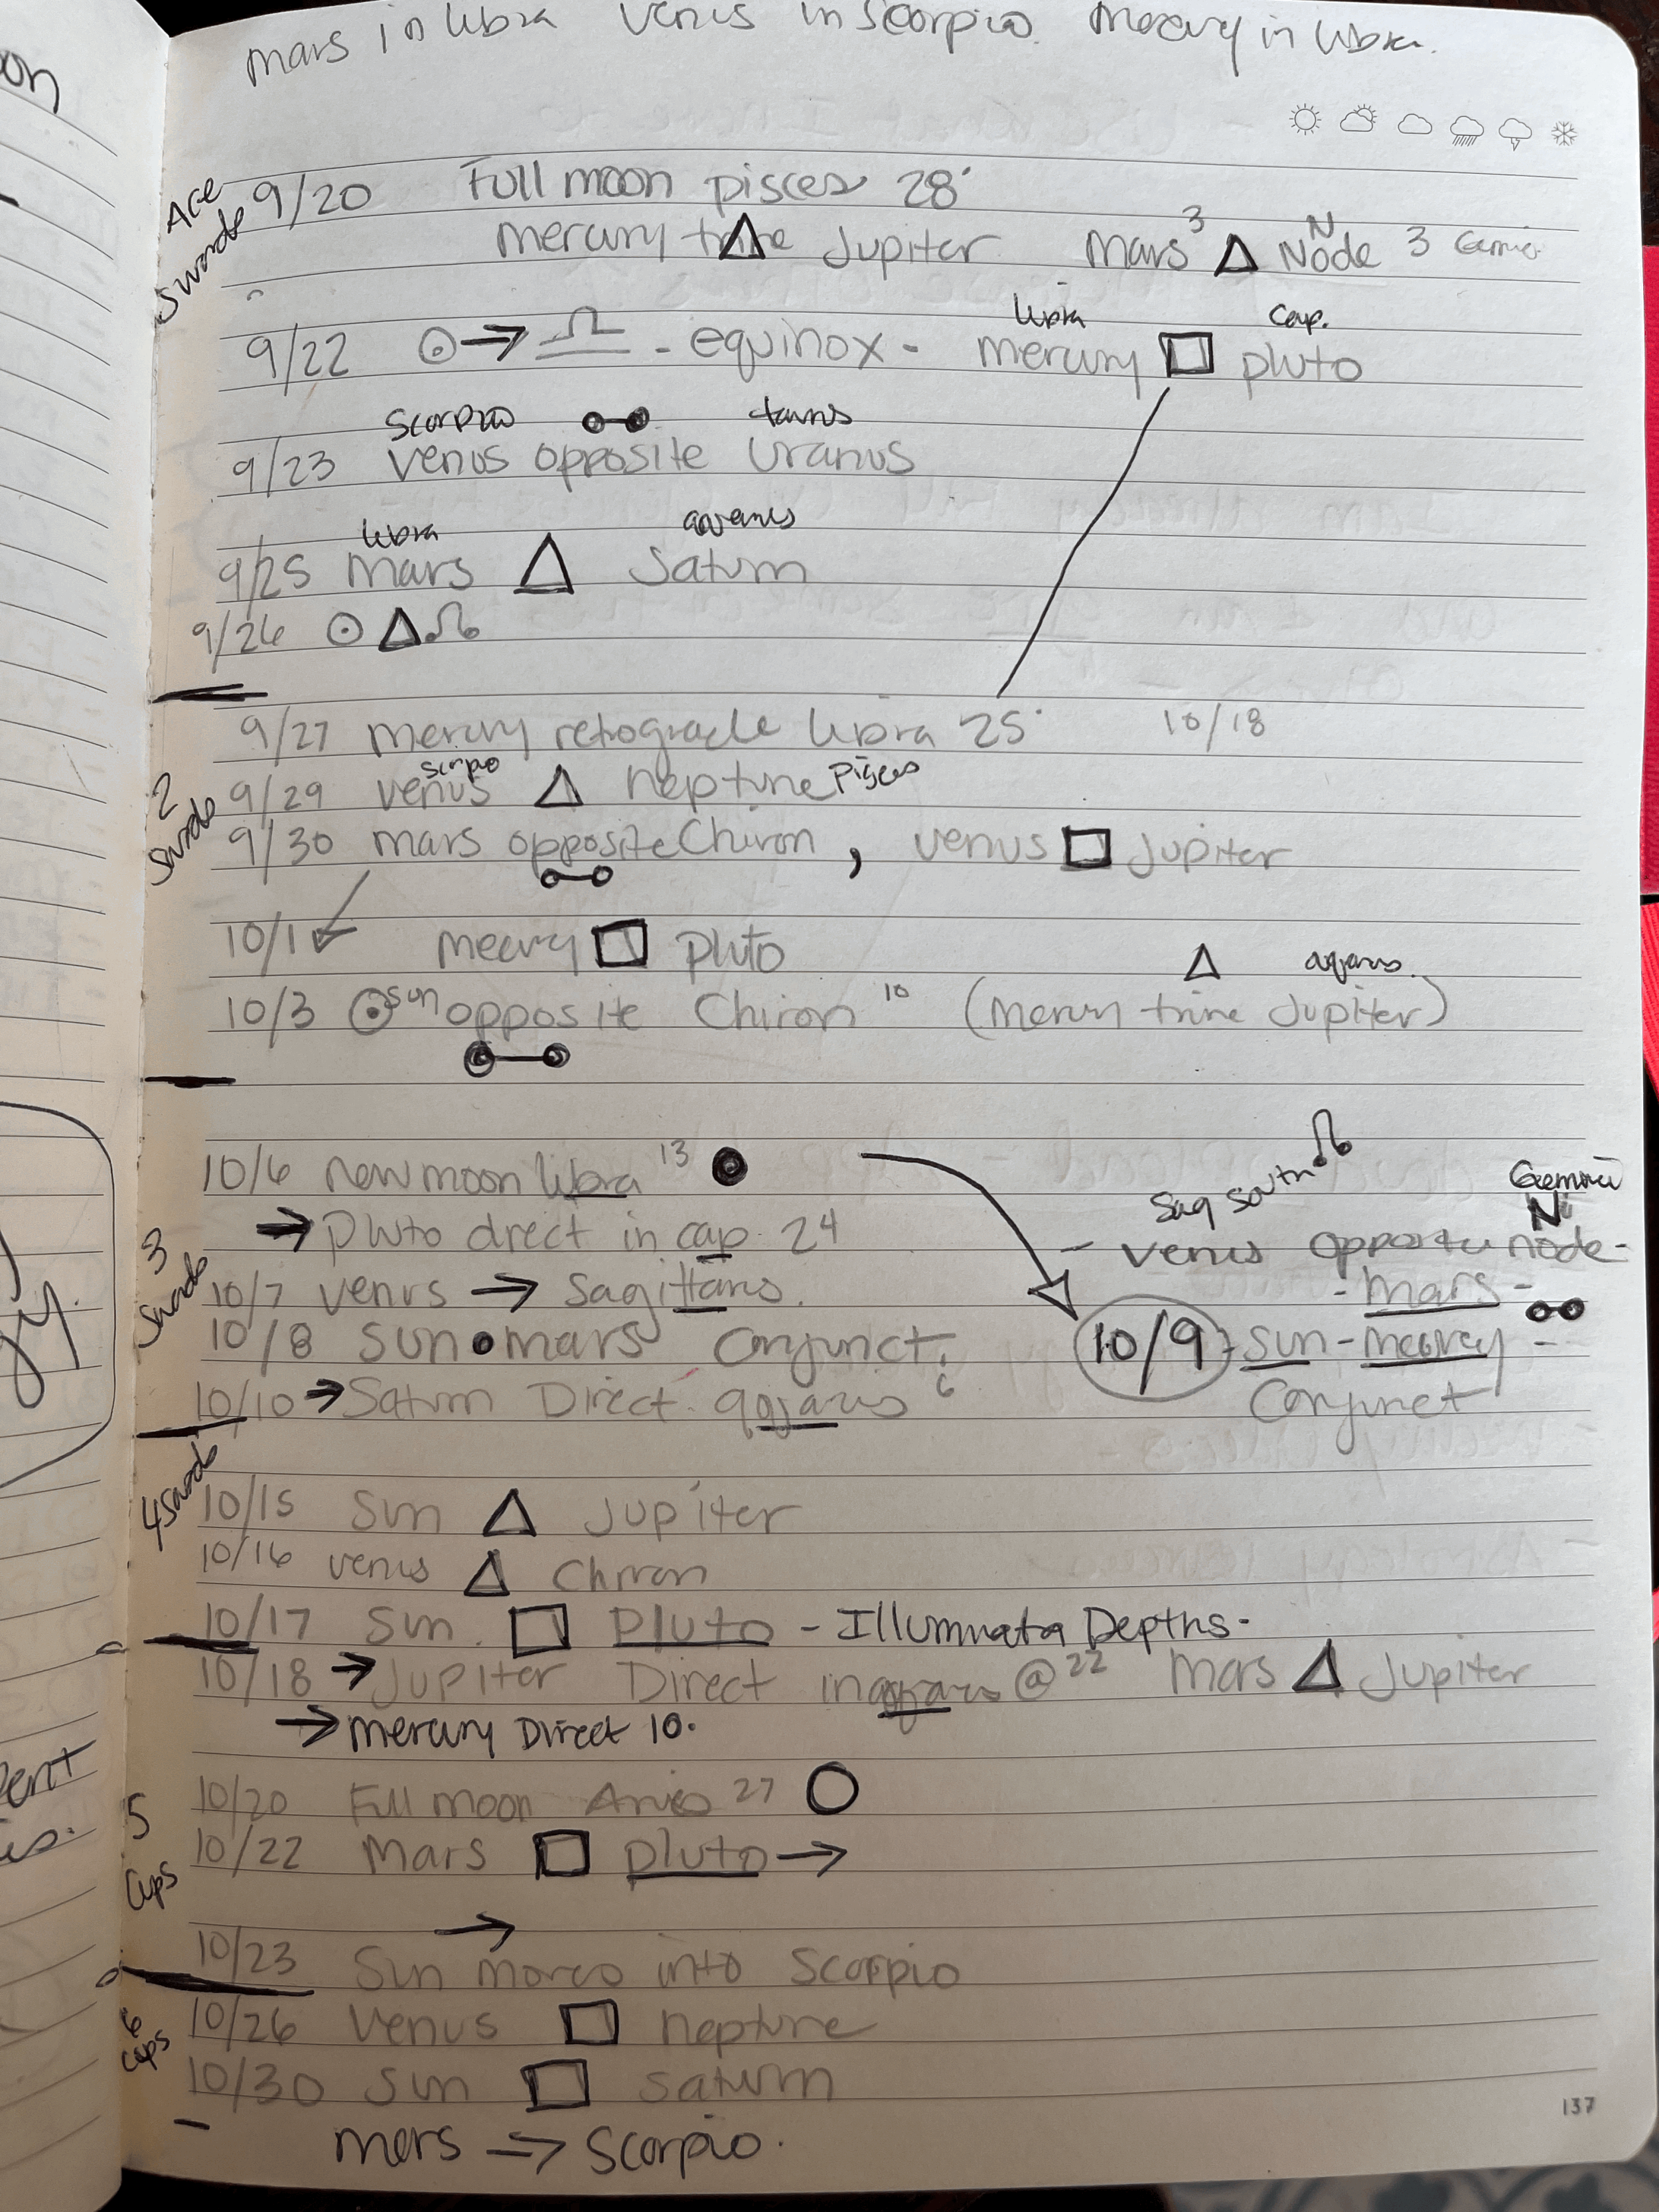 mars in libra   venus in scorpio.   mercury in libra.
Ace Swords
9/20   Full moon pisces 28°
mercury trine △ Jupiter   Mars ³ △ N Node 3 Gemini
libra   Cap.
9/22 ☉→♎ - equinox - mercury □ pluto
Scorpio ☍ taurus
9/23 venus opposite Uranus
libra   aquarius
9/25 mars △ Saturn
9/26 ☉ △ ☊
9/27 mercury retrograde libra 25°   10/18
2 Swords
scorpio
9/29 venus △ neptune pisces
9/30 mars opposite Chiron , venus □ Jupiter
☍
10/1 mercury □ pluto
△ aquarius.
10/3 ☉ sun opposite Chiron 10 (mercury trine Jupiter)
☍
3 Swords
10/6 new moon libra 13 ●
→ Pluto direct in cap 24
10/7 venus → Sagittarius.
10/8 Sun • mars conjunct.
10/10 → Saturn Direct. aquarius 6
Sag south ☊   Gemini
N
- venus opposite node -
- mars -
☍
10/9 - sun - mercury -
Conjunct
4 Swords
10/15 Sun △ Jupiter
10/16 venus △ Chiron
10/17 Sun □ Pluto - Illuminata Depths -
10/18 → Jupiter Direct in aquarius @ 22   Mars △ Jupiter
→ mercury Direct 10.
5 Cups
10/20 Full moon Aries 27 ○
10/22 Mars □ pluto →
→
10/23 Sun moves into Scorpio
6 Cups
10/26 Venus □ neptune
10/30 Sun □ saturn
mars → Scorpio.
137